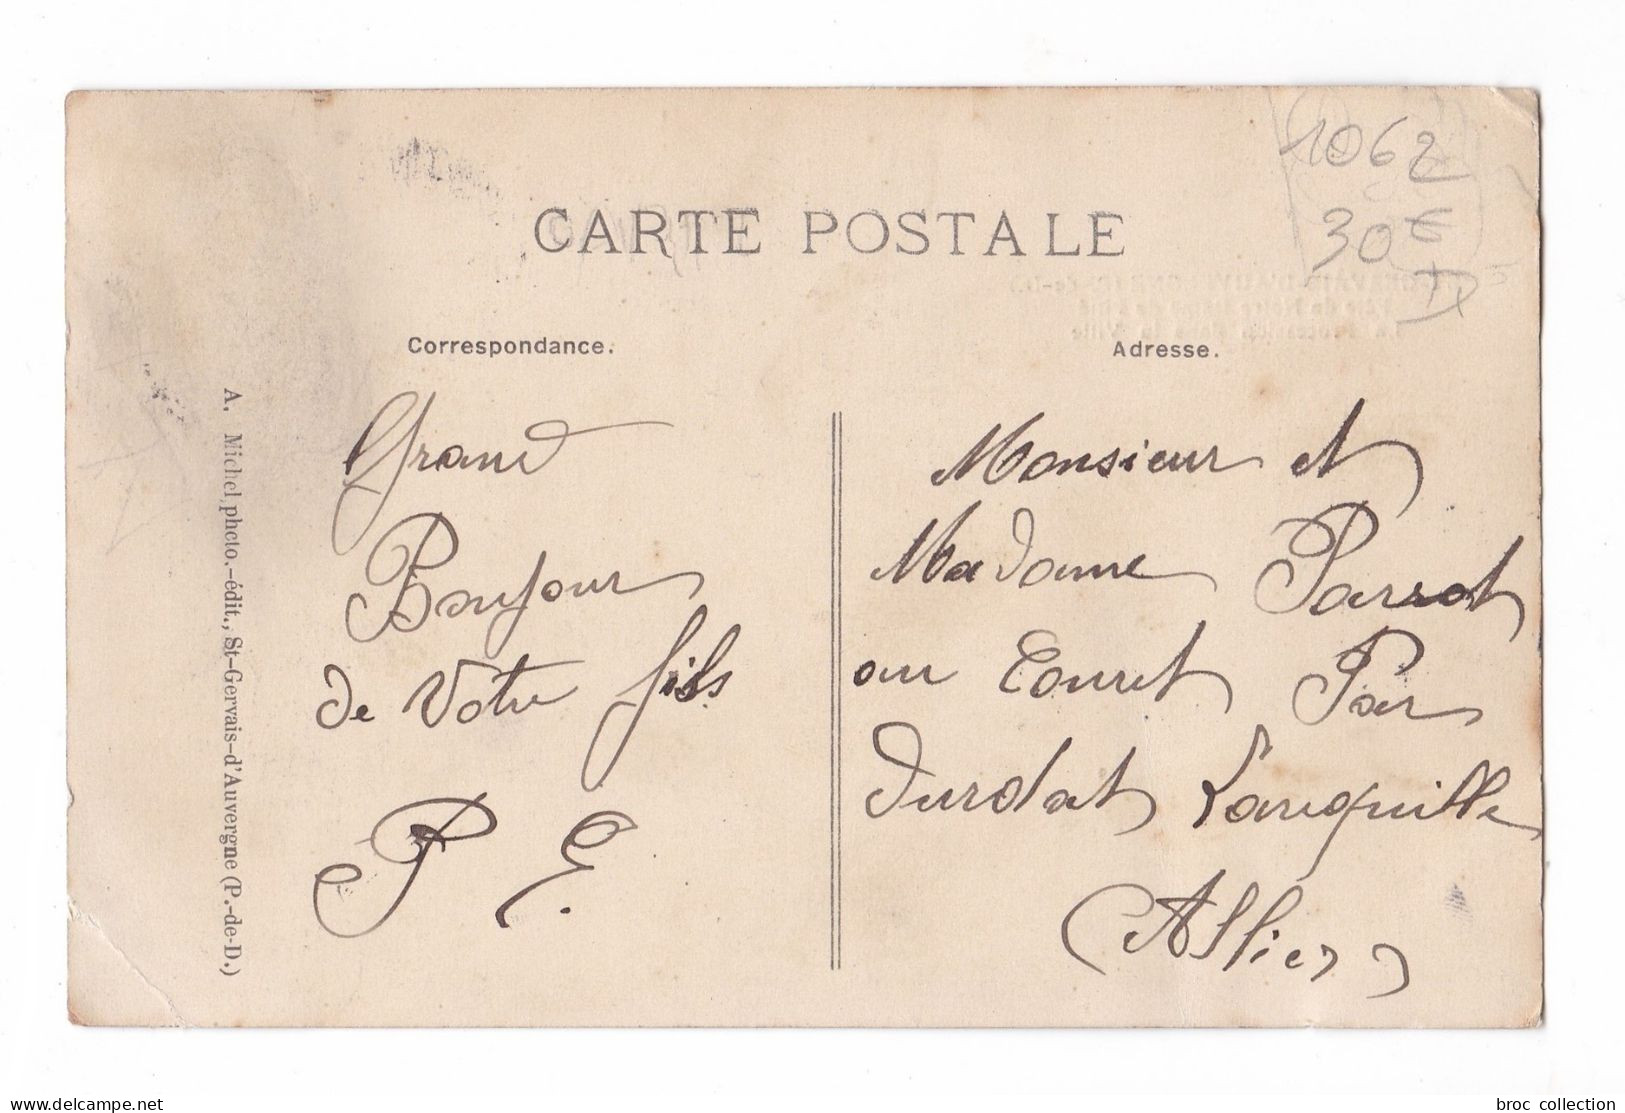 1062
30€
CARTE POSTALE
Correspondance.
Adresse.
A. Michel, photo.-édit., St-Gervais-d'Auvergne (P.-de-D.)
Grand
Bonjour
de Votre fils
P E.
Monsieur et
Madame Parrot
au Couret Par
Durdat Larequille
(Allier)
broc collection